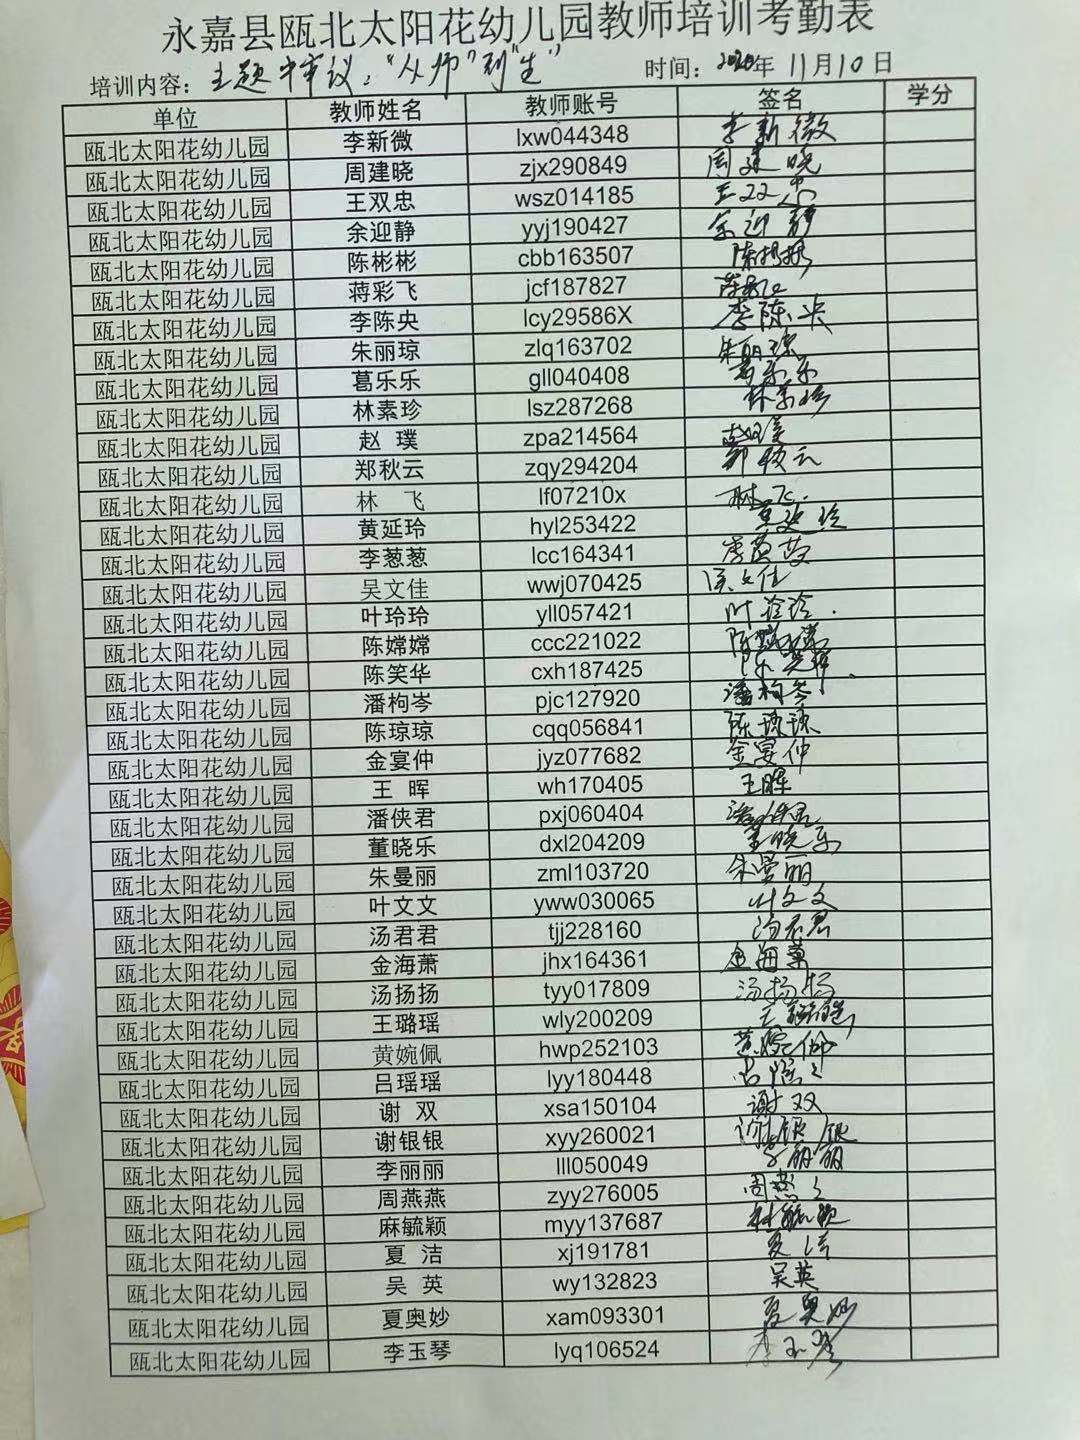 永嘉县瓯北太阳花幼儿园教师培训考勤表
培训内容：主题中审议："从师"到"生" 时间：2020年 11月10日
单位 教师姓名 教师账号 签名 学分
瓯北太阳花幼儿园 李新微 lxw044348 李新微
瓯北太阳花幼儿园 周建晓 zjx290849 周建晓
瓯北太阳花幼儿园 王双忠 wsz014185 王双忠
瓯北太阳花幼儿园 余迎静 yyj190427 余迎静
瓯北太阳花幼儿园 陈彬彬 cbb163507 陈彬彬
瓯北太阳花幼儿园 蒋彩飞 jcf187827 蒋彩飞
瓯北太阳花幼儿园 李陈央 lcy29586X 李陈央
瓯北太阳花幼儿园 朱丽琼 zlq163702 朱丽琼
瓯北太阳花幼儿园 葛乐乐 gll040408 葛乐乐
瓯北太阳花幼儿园 林素珍 lsz287268 林素珍
瓯北太阳花幼儿园 赵 璞 zpa214564 赵璞
瓯北太阳花幼儿园 郑秋云 zqy294204 郑秋云
瓯北太阳花幼儿园 林 飞 lf07210x 林飞
瓯北太阳花幼儿园 黄延玲 hyl253422 黄延玲
瓯北太阳花幼儿园 李葱葱 lcc164341 李葱葱
瓯北太阳花幼儿园 吴文佳 wwj070425 吴文佳
瓯北太阳花幼儿园 叶玲玲 yll057421 叶玲玲
瓯北太阳花幼儿园 陈嫦嫦 ccc221022 陈嫦嫦
瓯北太阳花幼儿园 陈笑华 cxh187425 陈笑华
瓯北太阳花幼儿园 潘枸岑 pjc127920 潘枸岑
瓯北太阳花幼儿园 陈琼琼 cqq056841 陈琼琼
瓯北太阳花幼儿园 金宴仲 jyz077682 金宴仲
瓯北太阳花幼儿园 王 晖 wh170405 王晖
瓯北太阳花幼儿园 潘侠君 pxj060404 潘侠君
瓯北太阳花幼儿园 董晓乐 dxl204209 董晓乐
瓯北太阳花幼儿园 朱曼丽 zml103720 朱曼丽
瓯北太阳花幼儿园 叶文文 yww030065 叶文文
瓯北太阳花幼儿园 汤君君 tjj228160 汤君君
瓯北太阳花幼儿园 金海萧 jhx164361 金海萧
瓯北太阳花幼儿园 汤扬扬 tyy017809 汤扬扬
瓯北太阳花幼儿园 王璐瑶 wly200209 王璐瑶
瓯北太阳花幼儿园 黄婉佩 hwp252103 黄婉佩
瓯北太阳花幼儿园 吕瑶瑶 lyy180448 吕瑶瑶
瓯北太阳花幼儿园 谢 双 xsa150104 谢双
瓯北太阳花幼儿园 谢银银 xyy260021 谢银银
瓯北太阳花幼儿园 李丽丽 lll050049 李丽丽
瓯北太阳花幼儿园 周燕燕 zyy276005 周燕燕
瓯北太阳花幼儿园 麻毓颖 myy137687 麻毓颖
瓯北太阳花幼儿园 夏 洁 xj191781 夏洁
瓯北太阳花幼儿园 吴 英 wy132823 吴英
瓯北太阳花幼儿园 夏奥妙 xam093301 夏奥妙
瓯北太阳花幼儿园 李玉琴 lyq106524 李玉琴